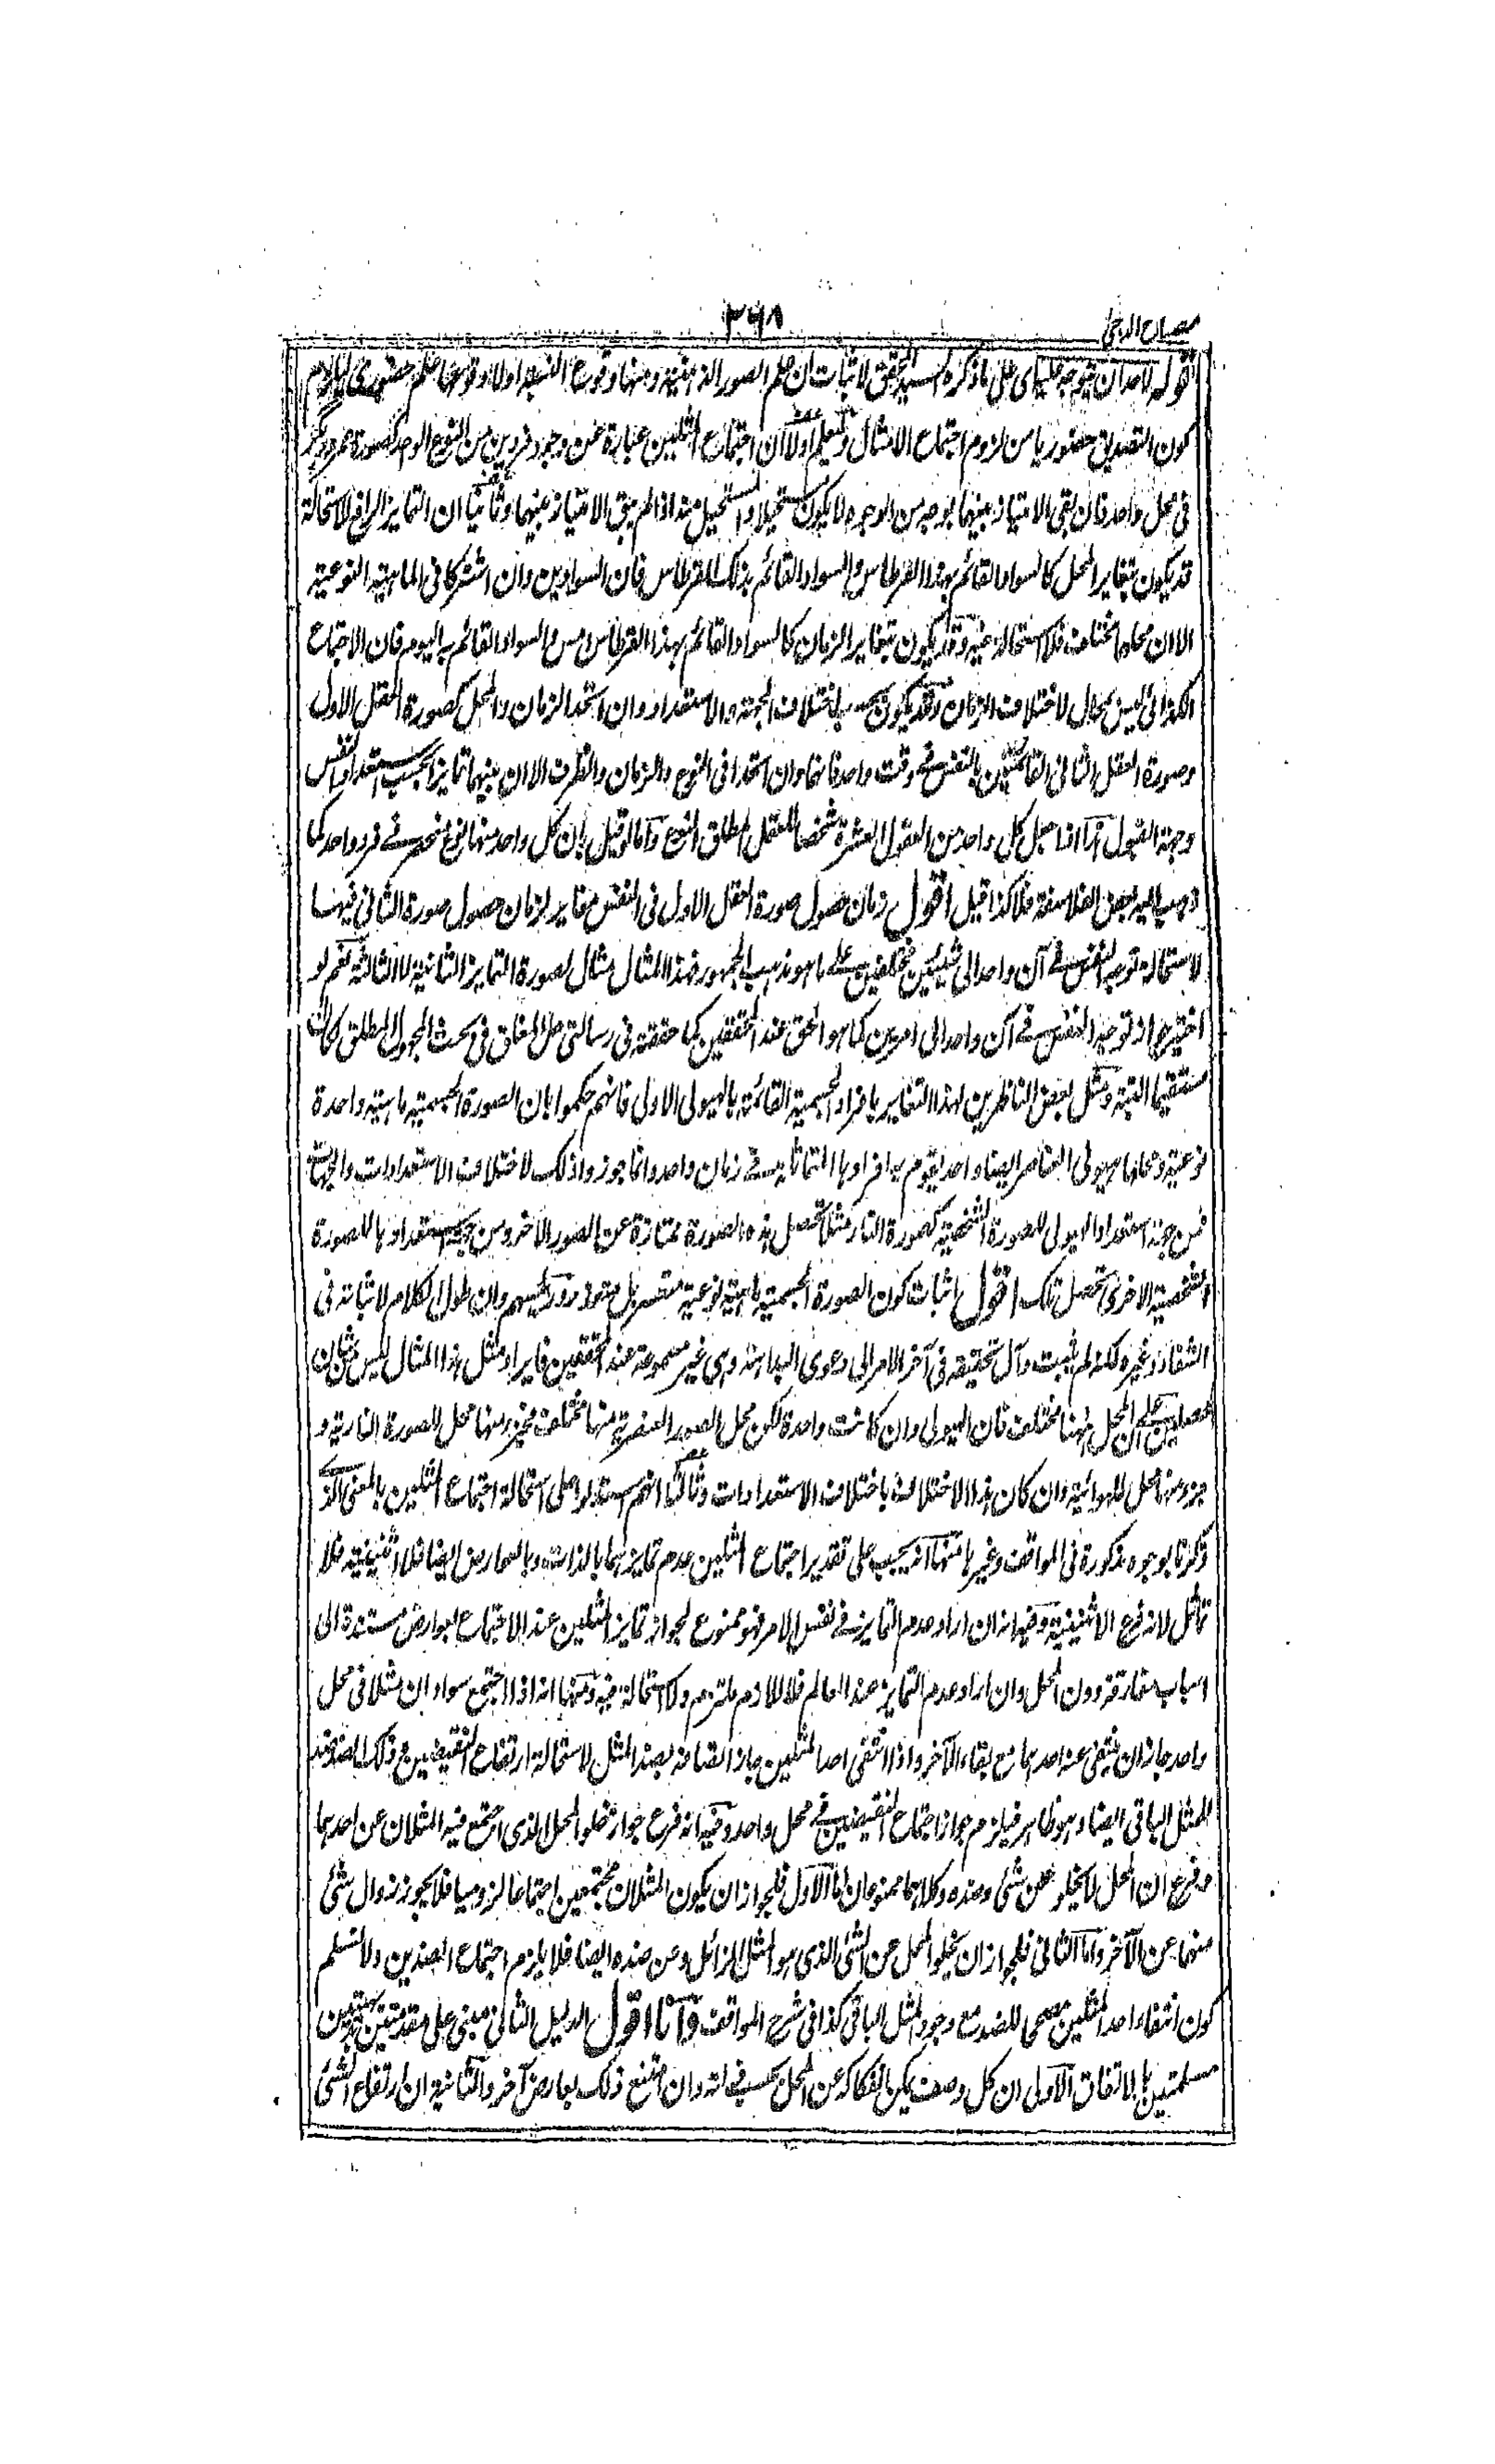 مصباح الدجى
٣٦٨
قوله لاحد ان يتوجه عليه اى على ما ذكره السيد المحقق لاثبات ان علم الصور الذهنية ومنها وقوع النسبة اولا وقوعها علم حضورى
كون التصديق حضوريا من لزوم اجتماع الامثال وليعلم اولا ان اجتماع المثلين عبارة عن وجود فردين من النوع الواحد كصورة عمرو وبكر
فى محل واحد فان بقى الامتياز بينهما بوجه من الوجوه لا يكون مستحيلا والمستحيل منه اذا لم يبق الامتياز بينهما وثانيا ان التمايز الرافع لاستحالة
قد يكون بتغاير المحل كالسواد القائم بهذا القرطاس والسواد القائم بذلك القرطاس فان السوادين وان اشتركا فى الماهية النوعية
الا ان محلهما مختلف فلا استحالة فيه وقد يكون بتغاير الزمان كالسواد القائم بهذا القرطاس امس والسواد القائم به اليوم فان الاجتماع
الكذائى ليس بمحال لاختلاف الزمان وقد يكون بحسب اختلاف الجهة والاستعداد وان اتحد الزمان والمحل كصورة العقل الاول
وصورة العقل الثانى القائمتين بالنفس فى وقت واحد فانهما وان اتحدا فى النوع والزمان والظرف الا ان بينهما تمايزا بحسب استعداد النفس
وجهة القبول هذا اذا جعل كل واحد من العقول العشرة شخصا للعقل المطلق النوع واما لو قيل بان كل واحد منها نوع منحصر فى فرد واحد كما
ذهب اليه بعض الفلاسفة فلا كذا قيل اقول زمان حصول صورة العقل الاول فى النفس مغاير لزمان حصول صورة الثانى فيها
لاستحالة توجه النفس فى آن واحد الى شيئين مختلفين على ما هو مذهب الجمهور فهذا المثال مثال لصورة التمايز الثانية لا الثالثة نعم لو
اختير جواز توجه النفس فى آن واحد الى امرين كما هو الحق عند المحققين كما حققته فى رسالتى حل المغلق فى بحث المجهول المطلق لكان
مستقيما البتة ومثل بعض الناظرين لهذا التغاير بافراد الجسمية القائمة بالهيولى الاولى فانهم حكموا بان الصورة الجسمية ماهية واحدة
نوعية ومحلها هيولى العناصر ايضا واحد يقوم به افرادها المتماثلة فى زمان واحد وانما جوزوا ذلك لاختلاف الاستعدادات والجهات
فمن جهة استعداد الهيولى للصورة الشخصية كصورة النار مثلا تحصل هذه الصورة ممتازة عن الصور الاخر ومن جهة استعدادها للصورة
الشخصية الاخرى تحصل تلك اقول اثبات كون الصورة الجسمية ماهية نوعية متعسر بل متعذر ورئيسهم وان طول الكلام لاثباته فى
الشفاء وغيره لكنه لم يثبت وآل تحقيقه فى آخر الامر الى دعوى البداهة وهى غير مسموعة عند المحققين فايراد مثل هذا المثال ليس من شان
المحصلين على ان المحل ههنا مختلف فان الهيولى وان كانت واحدة لكن محل الصور العنصرية منها مختلف فجزء منها محل للصورة النارية و
جزء منها محل للهوائية وان كان هذا الاختلاف باختلاف الاستعدادات وثالثا انهم استدلوا على استحالة اجتماع المثلين بالمعنى الذى
ذكرنا بوجوه مذكورة فى المواقف وغيرها منها انه يجب على تقدير اجتماع المثلين عدم تمايزهما بالذات وبالعوارض ايضا فلا اثنينية فلا
تماثل لانه فرع الاثنينية وفيه انه ان اراد عدم التمايز فى نفس الامر فهو ممنوع لجواز تمايز المثلين عند الاجتماع بعوارض مستندة الى
اسباب مفارقة دون المحل وان اراد عدم التمايز عند العالم فاللازم ملتزم ولا استحالة فيه ومنها انه اذا اجتمع سوادان مثلا فى محل
واحد جاز ان ينتفى عنه احدهما مع بقاء الآخر واذا انتفى احد المثلين جاز اتصافه بضد المثل لاستحالة ارتفاع النقيضين وذلك الضد ضد
للمثل الباقى ايضا وهو ظاهر فيلزم جواز اجتماع النقيضين فى محل واحد وفيه انه فرع جواز خلو المحل الذى اجتمع فيه المثلان عن احدهما
وفرع ان المحل لا يخلو عن شئ وضده وكلاهما ممنوعان اما الاول فلجواز ان يكون المثلان مجتمعين اجتماعا لزوميا فلا يجوز زوال شئ
منهما عن الآخر واما الثانى فلجواز ان يخلو المحل عن الشئ الذى هو المثل الزائل وعن ضده ايضا فلا يلزم اجتماع الضدين ولا نسلم
كون انتفاء احد المثلين مصححا للضد مع وجود المثل الباقى كذا فى شرح المواقف وانا اقول الدليل الثانى مبنى على مقدمتين
مسلمتين بالاتفاق الاولى ان كل وصف يمكن انفكاكه عن المحل بحسب ذاته وان امتنع ذلك بعارض آخر والثانية ان ارتفاع الشئ